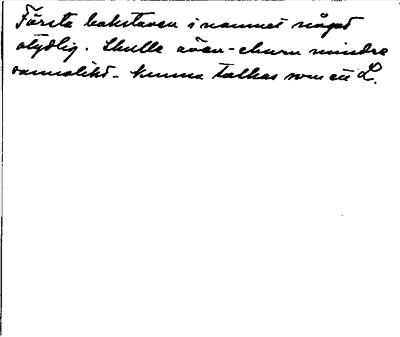 Första bokstaven i namnet något
otydlig. Skulle även - ehuru mindre
sannolikt - kunna tolkas som ett L.